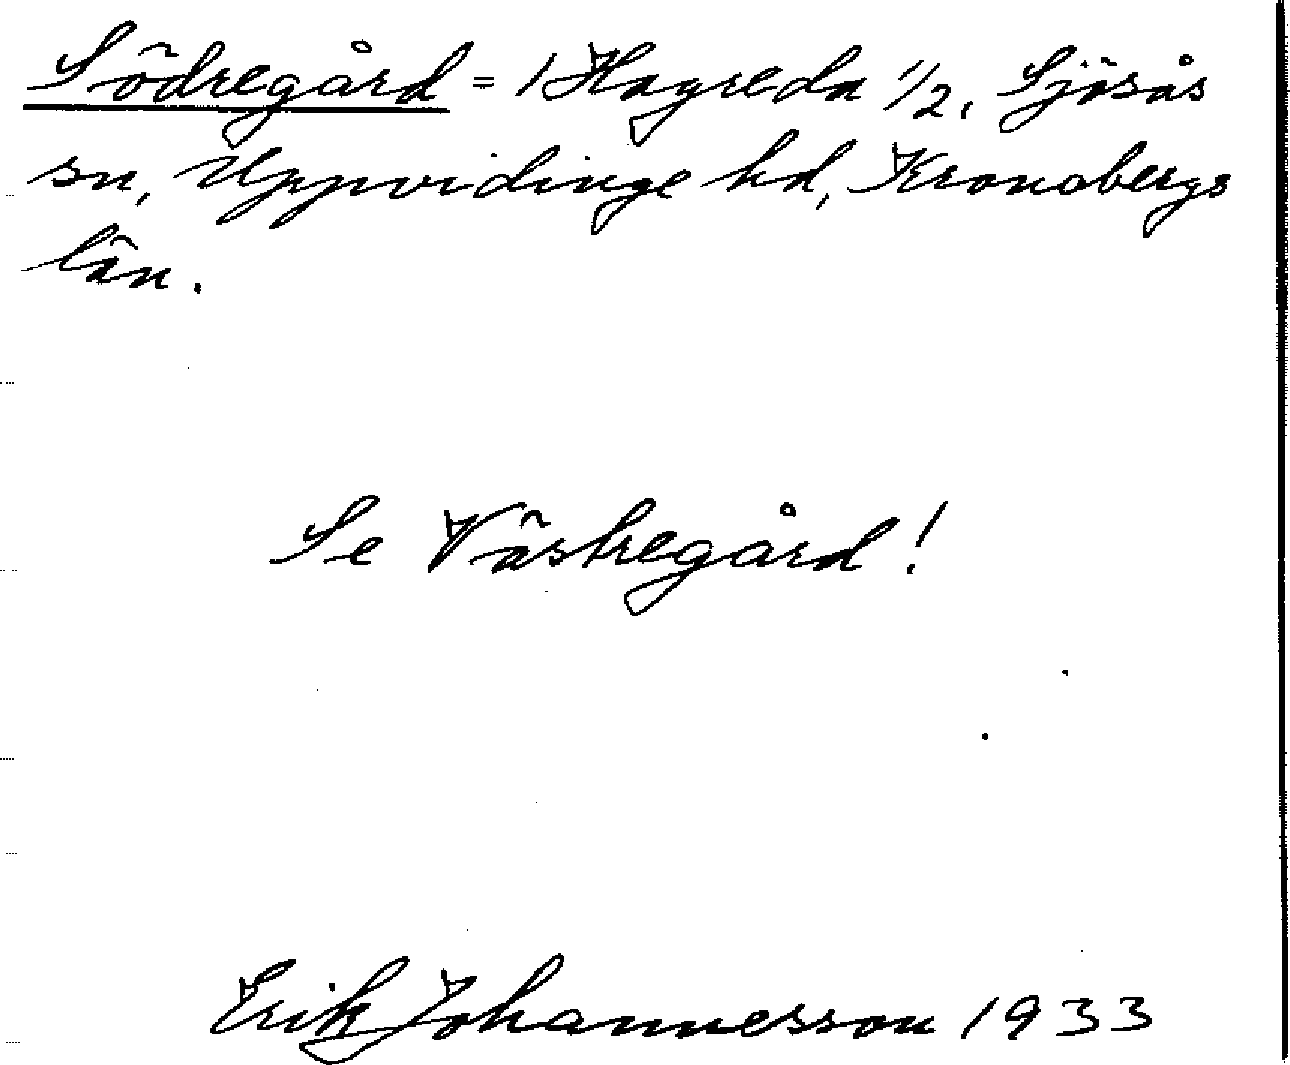 Södregård = 1 Hagreda 1/2, Sjösås
sn, Uppvidinge hd, Kronobergs
län.
Se Västregård!
Erik Johannesson 1933